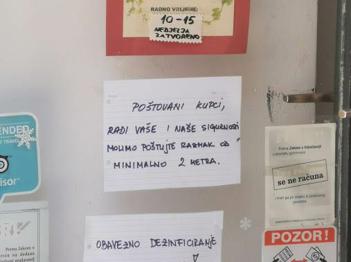 RADNO VRIJEME:
10-15
NEDJELJA
ZATVORENO
POŠTOVANI KUPCI,
RADI VAŠE I NAŠE SIGURNOSTI
MOLIMO POŠTUJTE RAZMAK OD
MINIMALNO 2 METRA.
OBAVEZNO DEZINFICIRANJE
se ne računa
POZOR!